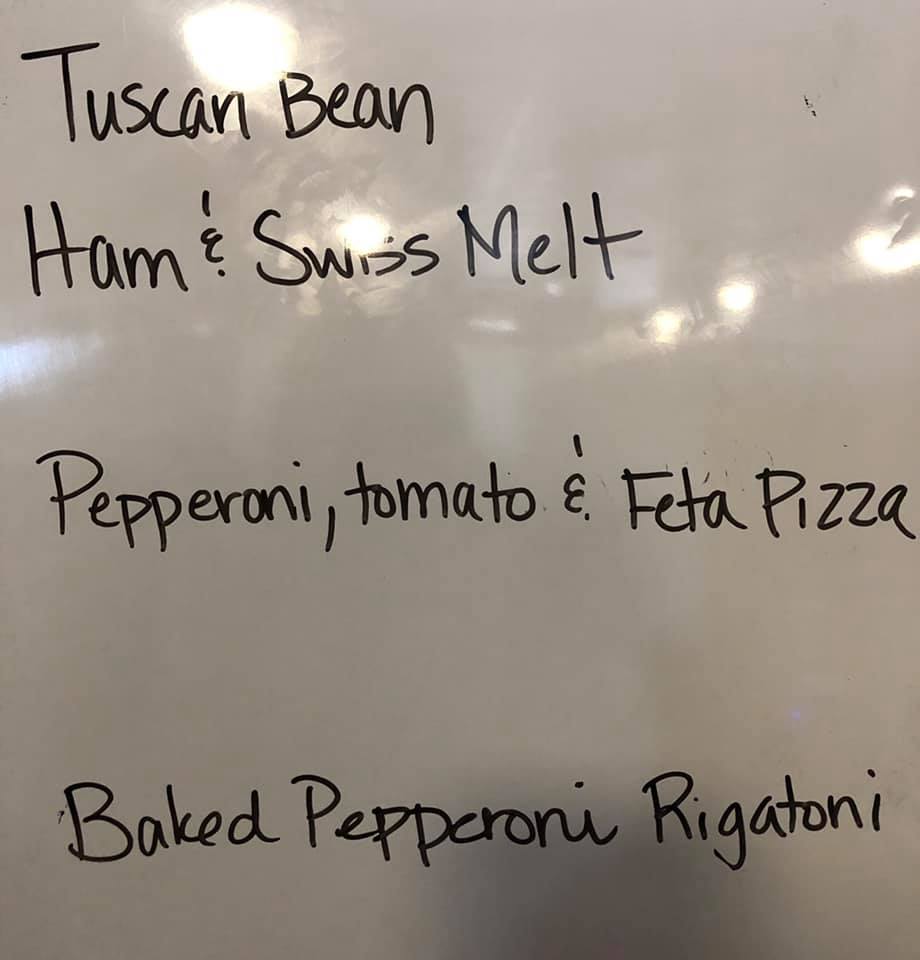 Tuscan Bean
Ham & Swiss Melt
Pepperoni, tomato & Feta Pizza
Baked Pepperoni Rigatoni